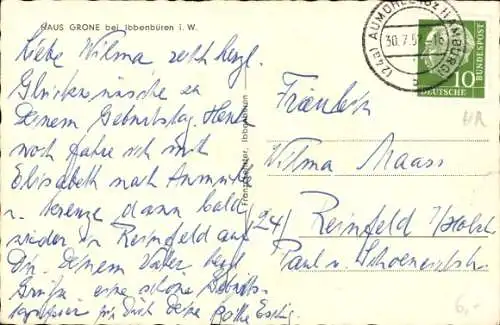 HAUS GRONE bei Ibbenbüren i. W.
Liebe Wilma recht herzl.
Glückwünsche zu
Deinem Geburtstag. Heute
noch fahre ich mit
Elisabeth nach
u. dann bald
wieder in Reinfeld auf
Dir, Deinem Vater herzl.
Grüße eine schöne Geburts-
für Dich Deine
Käthe
Ibbenbüren
(24a) AUMÜHLE (BZ HAMBURG)
30.7.5 -16
DEUTSCHE BUNDESPOST
10
Fräulein
Wilma Maass
(24) Reinfeld /Holst
Paul v. Schoeneichstr.
6,-